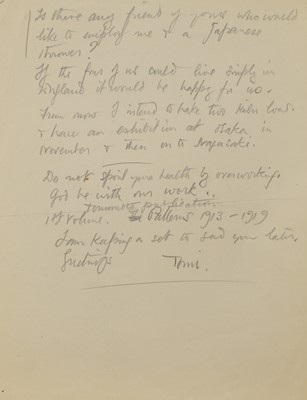 Is there any friend of yours who would
like to employ me & a Japanese
thrower?
If the four of us could live simply in
England it would be happy for us.
From now I intend to take two kiln loads
& have an exhibition at Osaka in
November & then on to Nagasaki.
Do not spoil your health by overworking.
God be with our work..
Tomimoto publication
1st Volume. Patterns 1913-1919
I am keeping a set to send you later.
Greetings Tomi.